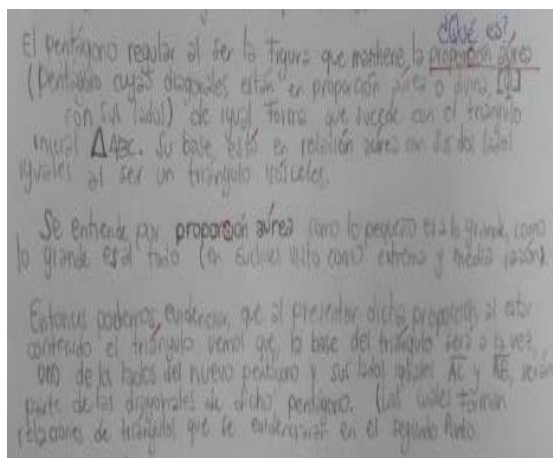 ¿Qué es?
El pentágono regular al ser la figura que mantiene la proporción áurea
(pentágono cuyas diagonales están en proporción áurea o divina, [Φ]
con sus lados) de igual forma que sucede con el triángulo
inicial △ABC. Su base está en relación áurea con sus dos lados
iguales al ser un triángulo isósceles.
Se entiende por proporción áurea como lo pequeño es a lo grande, como
lo grande es al todo (en Euclides visto como extrema y media razón).
Entonces podemos evidenciar, que al presentar dicha proporción, al estar
construido el triángulo vemos que, la base del triángulo será a la vez,
uno de los lados del nuevo pentágono y sus lados iguales AC y AB, serán
parte de las diagonales de dicho pentágono. (Las cuales forman
relaciones de triángulos, que se evidenciarán en el segundo punto.